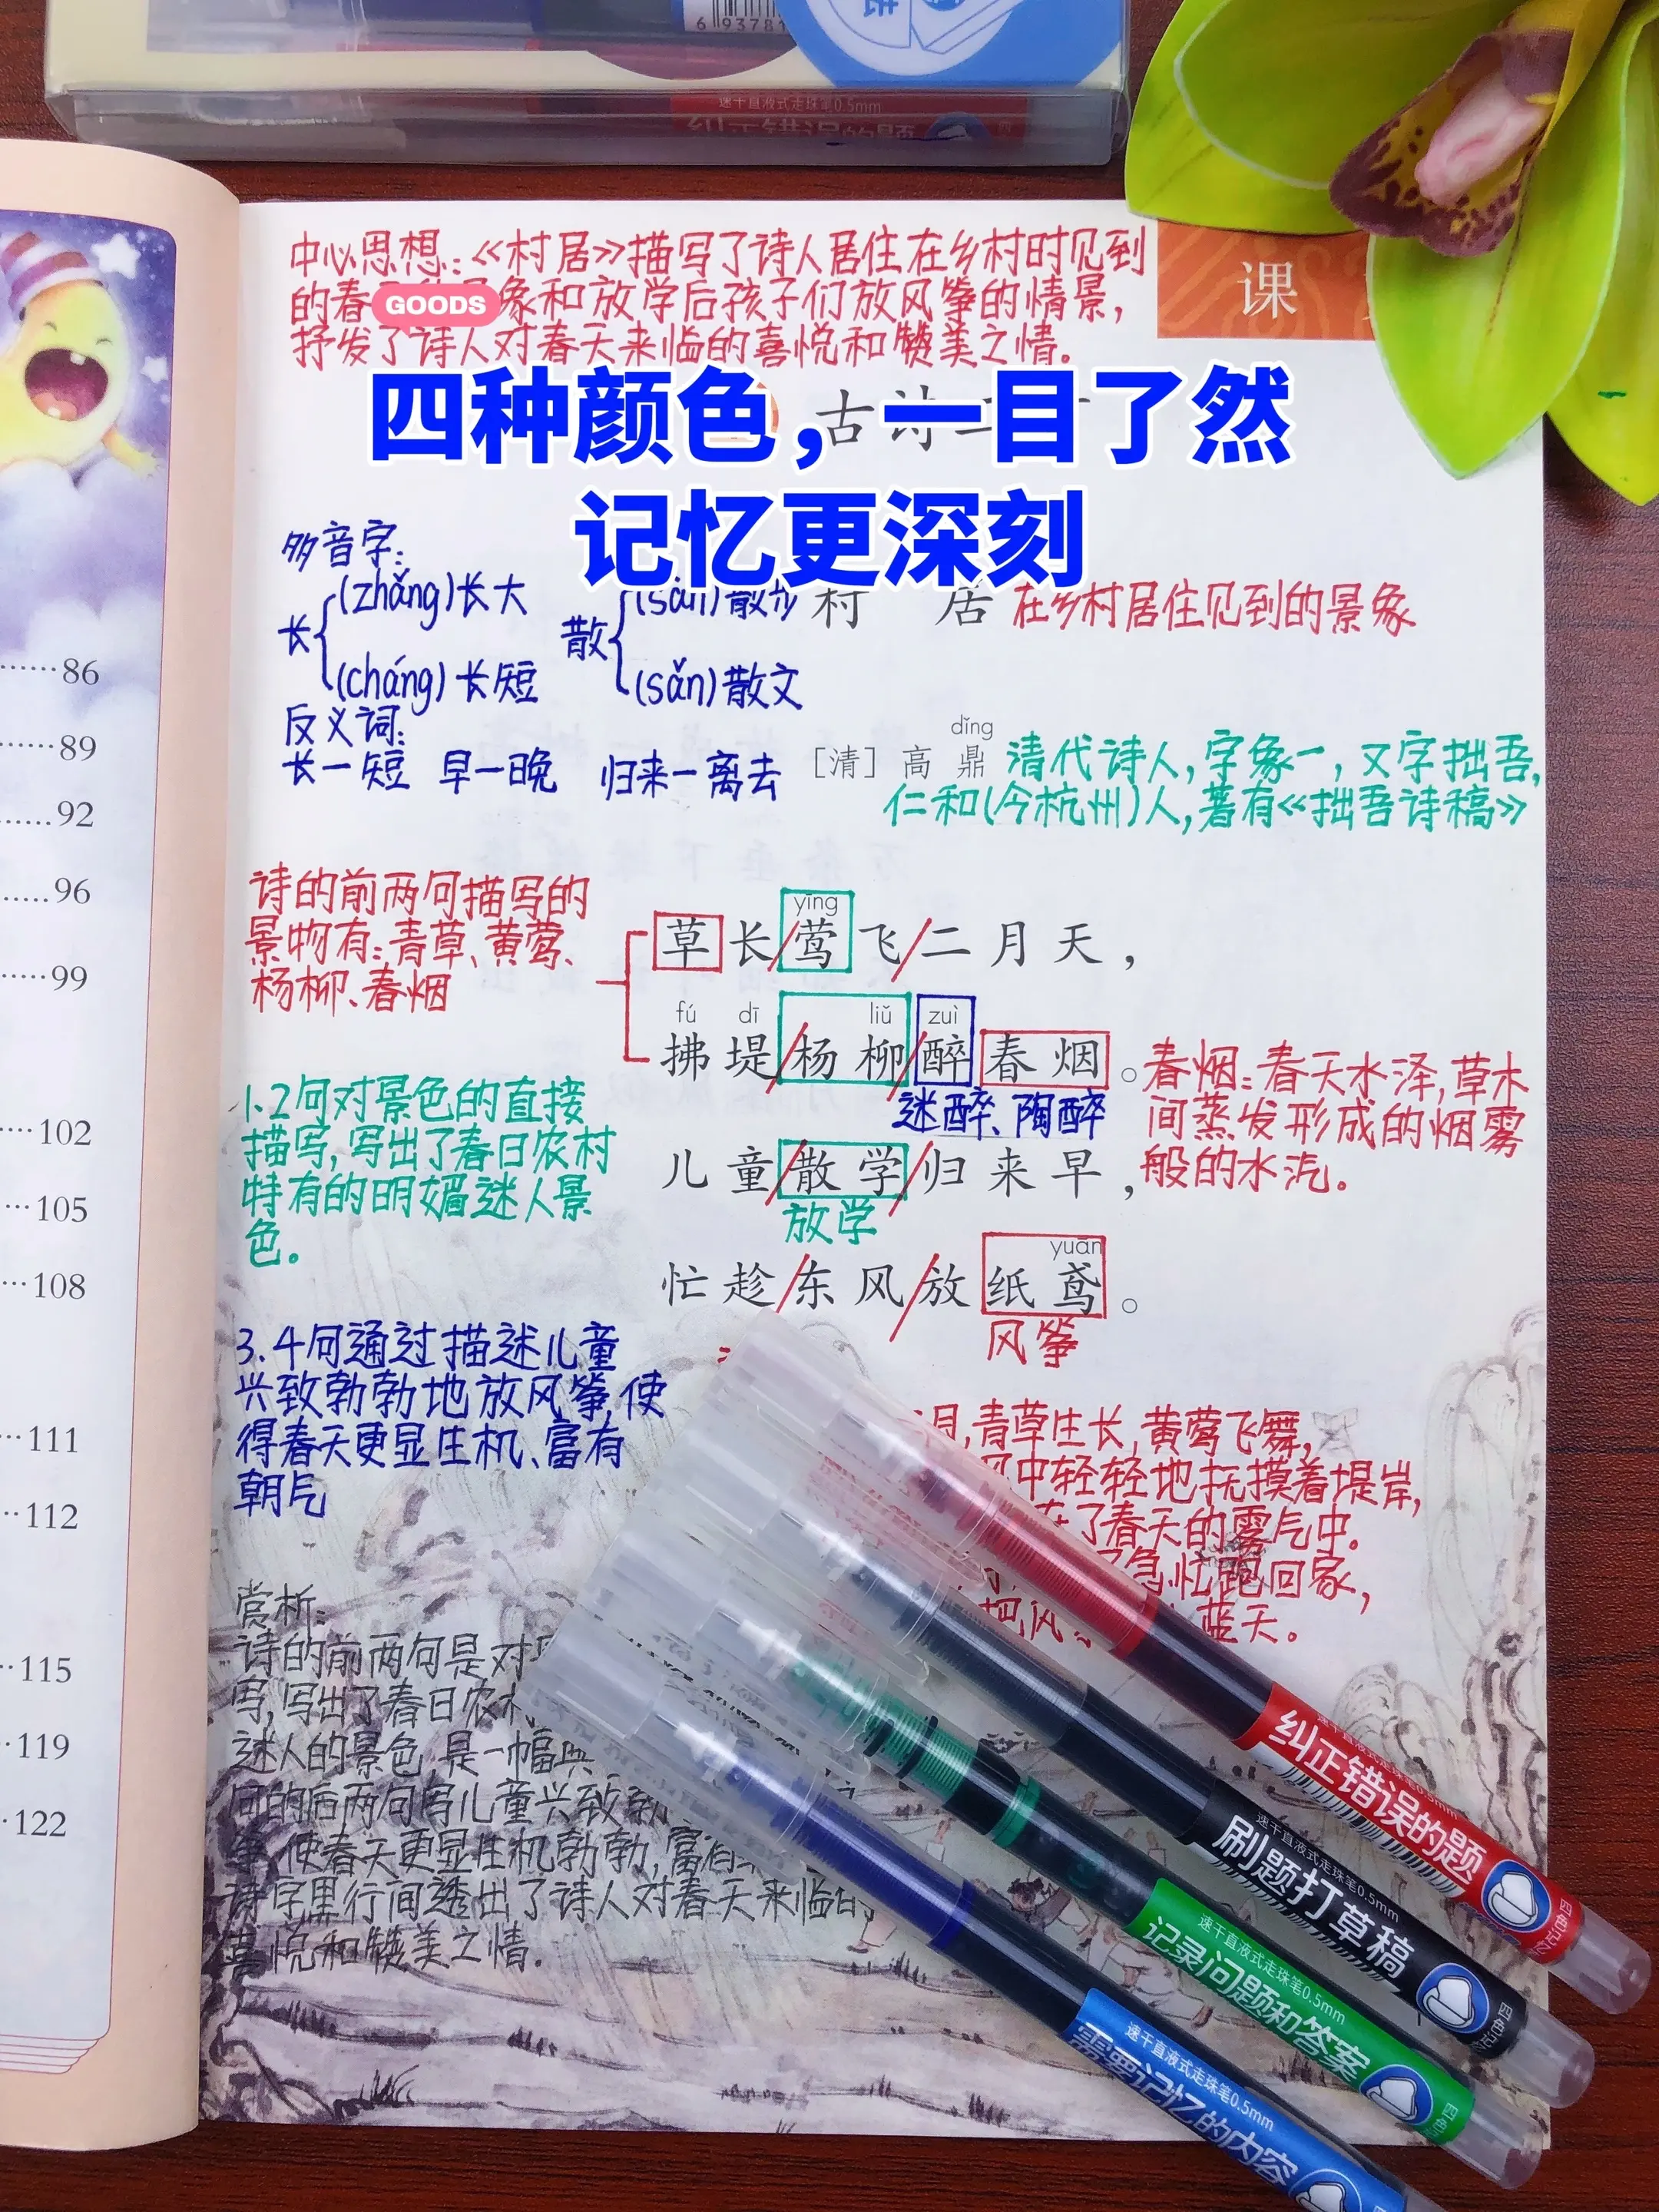 6 93781
速干直液式走珠笔0.5mm
纠正错误的题
中心思想:《村居》描写了诗人居住在乡村时见到
的春
GOODS
象和放学后孩子们放风筝的情景,
抒发了诗人对春天来临的喜悦和赞美之情。
课
古诗二
四种颜色，一目了然
记忆更深刻
多音字:
长
(zhǎng)长大
(cháng)长短
散
(sàn)散步
(sǎn)散文
村 居
在乡村居住见到的景象
反义词:
长一短 早一晚 归来一离去
dǐng
[清] 高 鼎
清代诗人,字象一,又字拙吾,
仁和(今杭州)人,著有《拙吾诗稿》
诗的前两句描写的
景物有:青草、黄莺、
杨柳、春烟
yīng
草长/莺飞/二月天，
fú dī liǔ zuì
拂堤/杨柳/醉春烟。
迷醉、陶醉
春烟:春天水泽,草木
间蒸发形成的烟雾
般的水汽。
1.2句对景色的直接
描写,写出了春日农村
特有的明媚迷人景
色。
儿童/散学/归来早，
放学
yuān
忙趁/东风/放纸鸢。
风筝
3.4句通过描述儿童
兴致勃勃地放风筝,使
得春天更显生机、富有
朝气
月,青草生长,黄莺飞舞,
风中轻轻地抚摸着堤岸,
在了春天的雾气中。
急忙跑回家,
把风
蓝天。
赏析:
诗的前两句是对
写,写出了春日农村
迷人的景色,是一幅典
句的后两句写儿童兴致勃
筝,使春天更显生机勃勃,富有
诗字里行间透出了诗人对春天来临
喜悦和赞美之情.
86
89
92
96
99
102
105
108
111
112
115
119
122
速干直液式走珠笔0.5mm
纠正错误的题
四色记忆
速干直液式走珠笔0.5mm
刷题打草稿
四色记忆
速干直液式走珠笔0.5mm
记录问题和答案
四色
速干直液式走珠笔0.5mm
需要记忆的内容